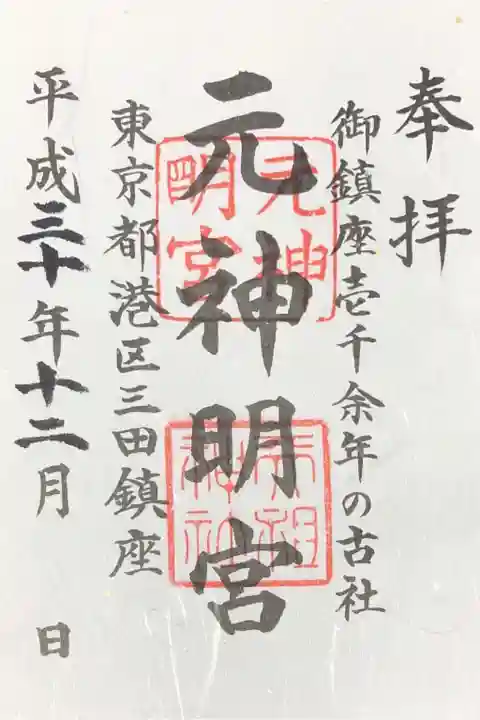 奉拝
御鎮座壱千余年の古社
元神明宮
元神明宮
東京都港区三田鎮座
平成三十年十二月 日